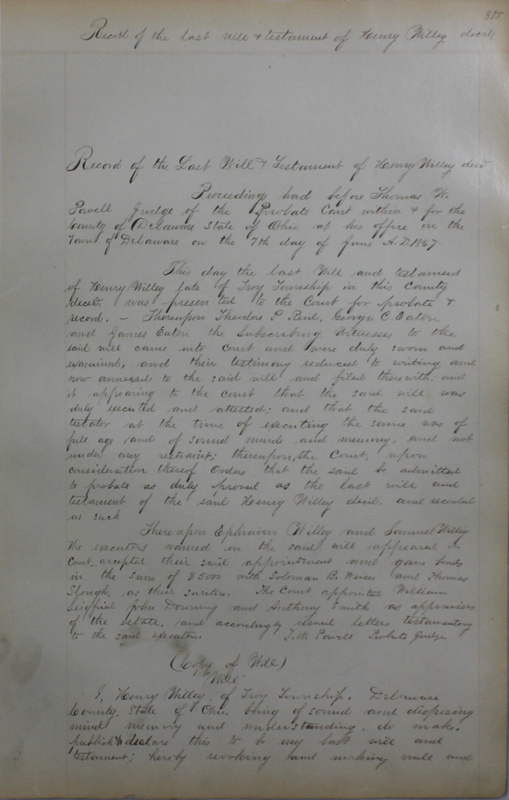 335
Record of the last will & testament of Henry Willey decd
Record of the Last Will & Testament of Henry Willey decd
Proceedings had before Thomas W.
Powell Judge of the Probate Court within & for the
County of Delaware State of Ohio at his office in the
Town of Delaware on the 7th day of June A.D. 1867
This day the last Will and testament
of Henry Willey late of Troy Township in this County
decd. was presented to the Court for probate &
record. - Thereupon Theodore P. Reid, George C. Eaton
and James Eaton the Subscribing Witnesses to the
said will came into Court and were duly sworn and
examined, and their testimony reduced to writing and
now annexed to the said will and filed therewith and
it appearing to the court that the said will was
duly executed and attested; and that the said
testator at the time of executing the same was of
full age and of sound mind and memory, and not
under any restraint; thereupon the Court, upon
consideration thereof Orders that the said be admitted
to probate as duly proved as the last will and
testament of the said Henry Willey decd. and recorded
as such
Thereupon Ephraim Willey and Samuel Willey
the executors named in the said will appeared in
Court, accepted their said appointment and gave bonds
in the sum of $5000 with Soloman B. and Thomas
Slough, as their sureties. The Court appointed William
John Downing and Anthony Smith as appraisers
of the estate. and accordingly issued letters testamentary
to the said executors T.W. Powell Probate Judge
(Copy of Will)
"Will"
I, Henry Willey, of Troy Township. Delaware
County, State of Ohio. being of sound and disposing
mind memory and understanding. do make,
publish & declare this to be my last will and
testament; hereby revoking and making null and